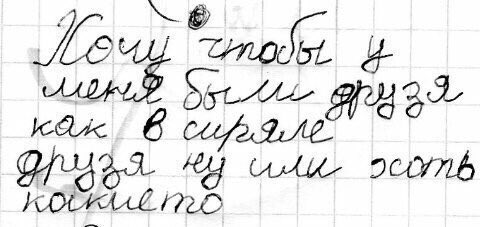 Хочу чтобы у
меня были друзя
как в сиряле
друзя ну или хоть
какието